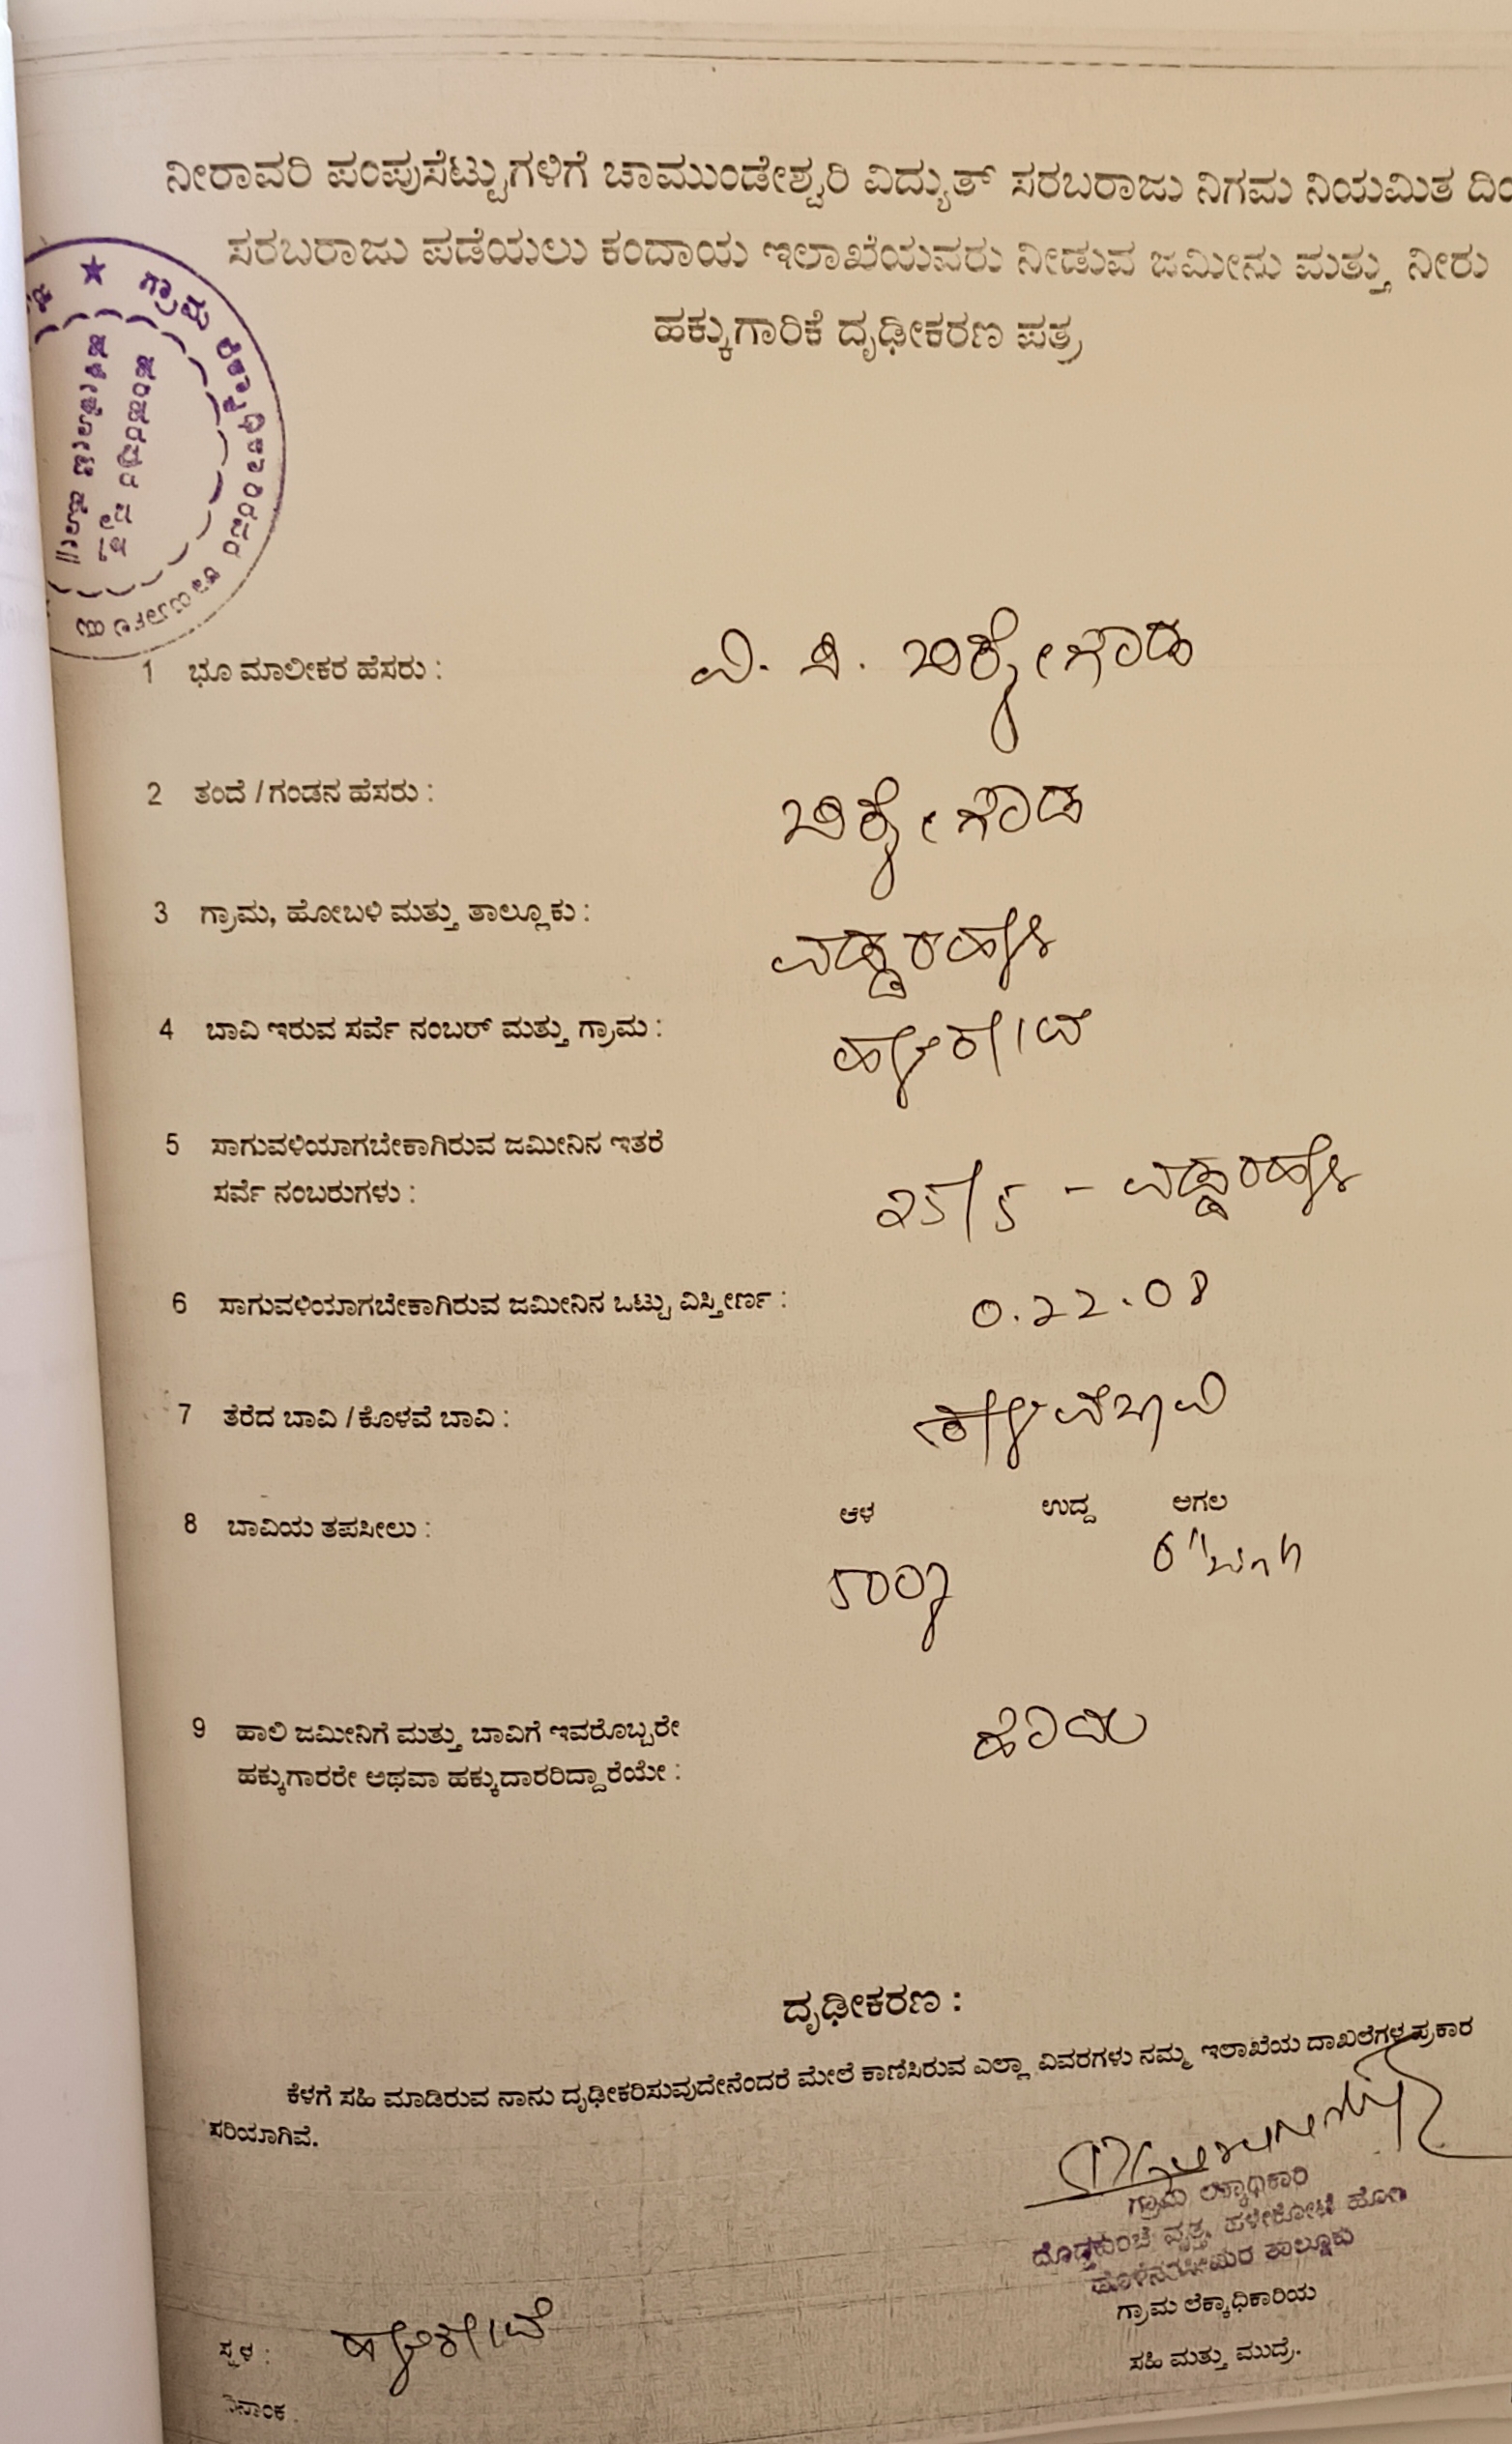 ನೀರಾವರಿ ಪಂಪುಸೆಟ್ಟುಗಳಿಗೆ ಚಾಮುಂಡೇಶ್ವರಿ ವಿದ್ಯುತ್ ಸರಬರಾಜು ನಿಗಮ ನಿಯಮಿತ
ಸರಬರಾಜು ಪಡೆಯಲು ಕಂದಾಯ ಇಲಾಖೆಯವರು ನೀಡುವ ಜಮೀನು ಮತ್ತು ನೀರು
ಹಕ್ಕುಗಾರಿಕೆ ದೃಢೀಕರಣ ಪತ್ರ
ಗ್ರಾಮ ಲೆಕ್ಕಾಧಿಕಾರಿರವರ ಕಾರ್ಯಾಲಯ
ಹಳೇಕೋಟೆ ಹೋ||
1 ಭೂ ಮಾಲೀಕರ ಹೆಸರು :
2 ತಂದೆ / ಗಂಡನ ಹೆಸರು :
3 ಗ್ರಾಮ, ಹೋಬಳಿ ಮತ್ತು ತಾಲ್ಲೂಕು : ವಡ್ಡರಹಳ್ಳಿ
4 ಬಾವಿ ಇರುವ ಸರ್ವೆ ನಂಬರ್ ಮತ್ತು ಗ್ರಾಮ : ಹಳೇಕೋಟೆ
5 ಸಾಗುವಳಿಯಾಗಬೇಕಾಗಿರುವ ಜಮೀನಿನ ಇತರೆ
ಸರ್ವೆ ನಂಬರುಗಳು : 25/5 - ವಡ್ಡರಹಳ್ಳಿ
6 ಸಾಗುವಳಿಯಾಗಬೇಕಾಗಿರುವ ಜಮೀನಿನ ಒಟ್ಟು ವಿಸ್ತೀರ್ಣ : 0.22.08
7 ತೆರೆದ ಬಾವಿ / ಕೊಳವೆ ಬಾವಿ : ಕೊಳವೆಬಾವಿ
8 ಬಾವಿಯ ತಪಸೀಲು : ಆಳ ಉದ್ದ ಅಗಲ
9 ಹಾಲಿ ಜಮೀನಿಗೆ ಮತ್ತು ಬಾವಿಗೆ ಇವರೊಬ್ಬರೇ ಹೌದು
ಹಕ್ಕುಗಾರರೇ ಅಥವಾ ಹಕ್ಕುದಾರರಿದ್ದಾರೆಯೇ :
ದೃಢೀಕರಣ :
ಕೆಳಗೆ ಸಹಿ ಮಾಡಿರುವ ನಾನು ದೃಢೀಕರಿಸುವುದೇನೆಂದರೆ ಮೇಲೆ ಕಾಣಿಸಿರುವ ಎಲ್ಲಾ ವಿವರಗಳು ನಮ್ಮ ಇಲಾಖೆಯ ದಾಖಲೆಗಳ ಪ್ರಕಾರ
ಸರಿಯಾಗಿವೆ.
ಗ್ರಾಮ ಲೆಕ್ಕಾಧಿಕಾರಿ
ದೊಡ್ಡಕುಂಚೆ ವೃತ್ತ, ಹಳೇಕೋಟೆ ಹೋ||
ಹೊಳೆನರಸೀಪುರ ತಾಲ್ಲೂಕು
ಗ್ರಾಮ ಲೆಕ್ಕಾಧಿಕಾರಿಯ
ಸಹಿ ಮತ್ತು ಮುದ್ರೆ.
ಸ್ಥಳ : ಹಳೇಕೋಟೆ
ದಿನಾಂಕ